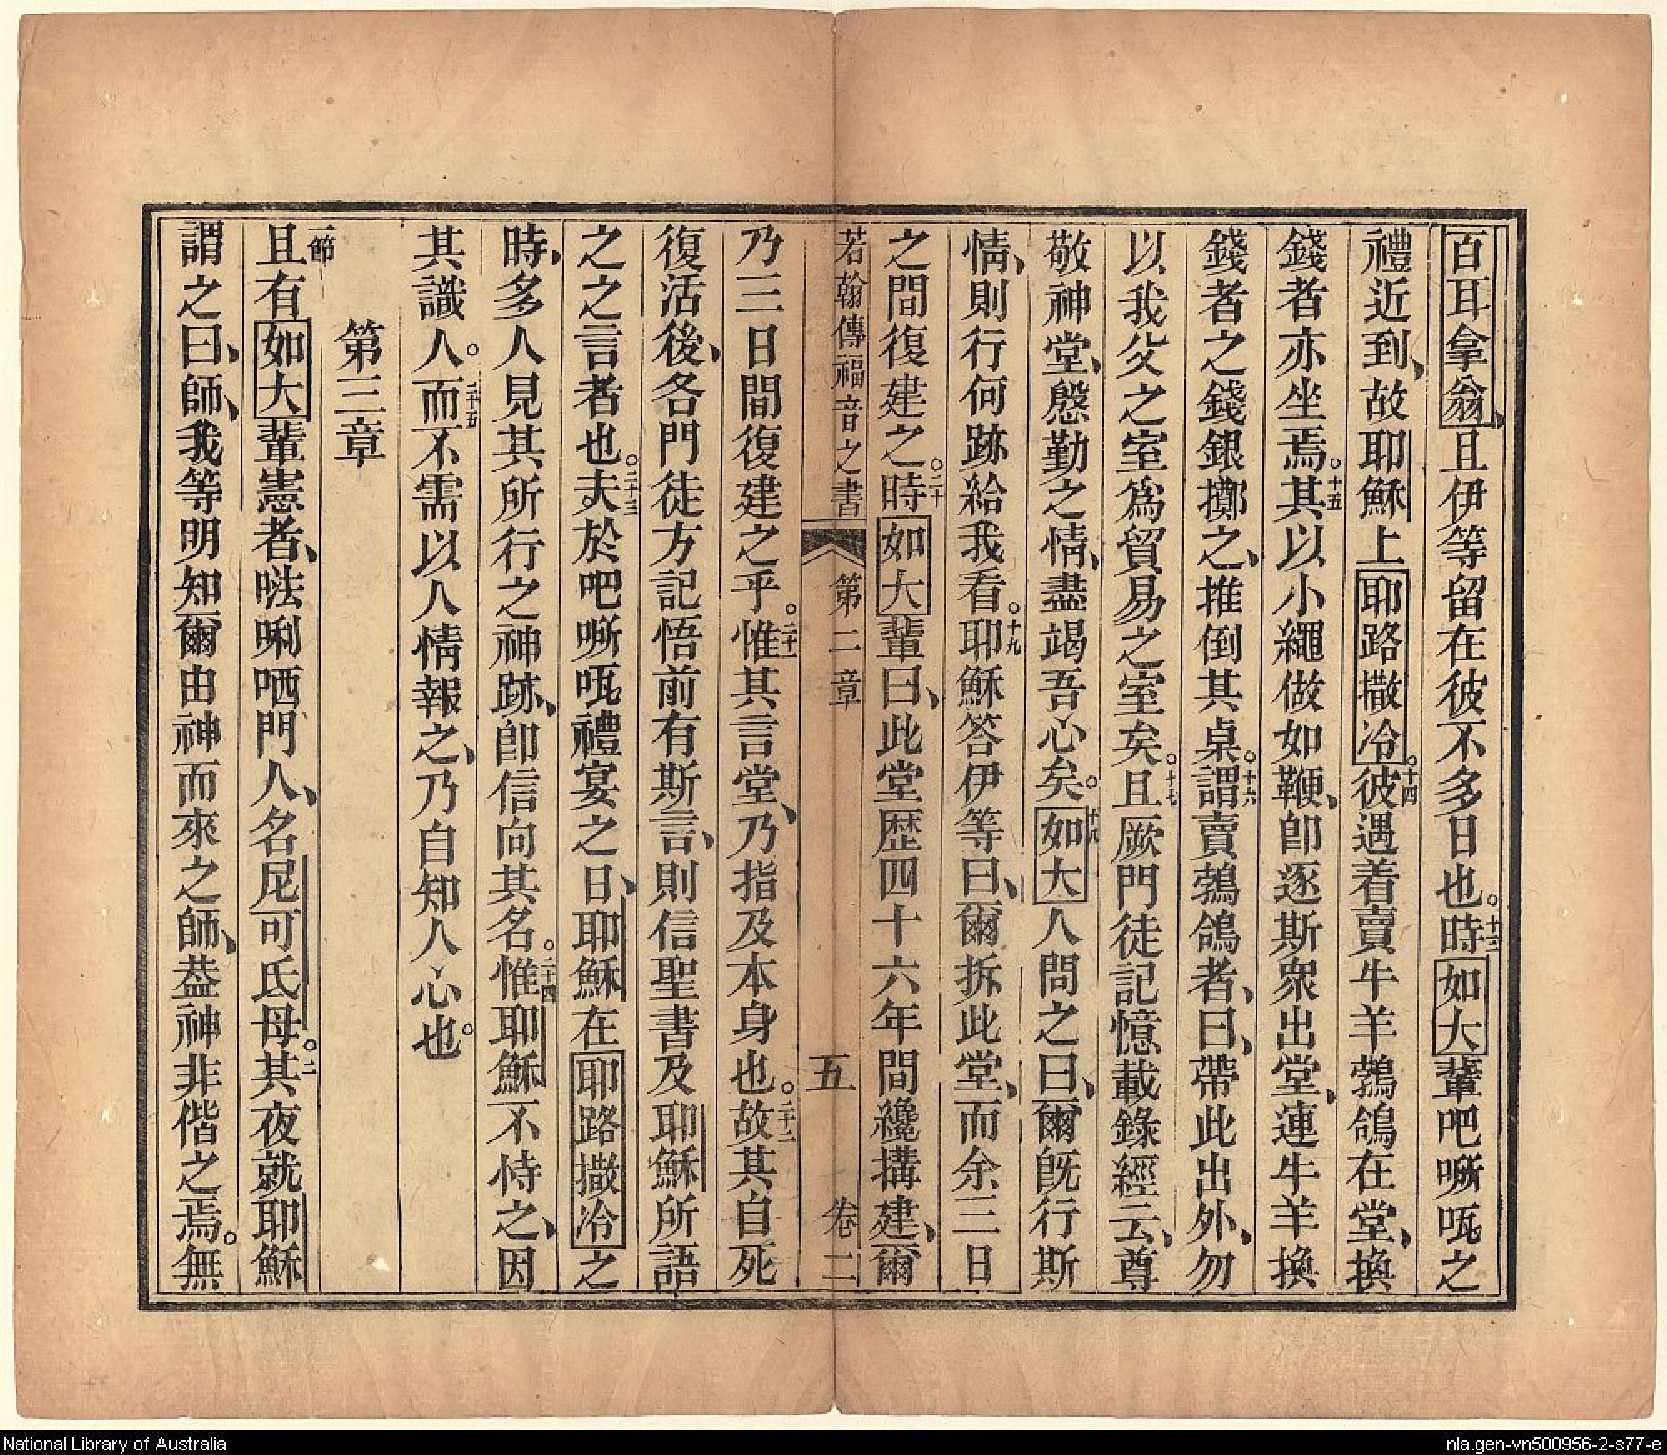 百耳拿翁、且伊等留在彼不多日也。十三時如大輩吧㗭㕵之
禮近到、故耶穌上耶路撒冷。十四彼遇着賣牛羊鵓鴿在堂、換
錢者亦坐焉。十五其以小繩做如鞭、卽逐斯衆出堂、連牛羊換
錢者之錢銀擲之、推倒其桌。十六謂賣鵓鴿者、曰、帶此出外、勿
以我父之室爲貿易之室矣。十七且厥門徒記憶載錄經云、尊
敬神堂、慇勤之情、盡竭吾心矣。十八如大人問之曰、爾旣行斯
情、則行何跡給我看。十九耶穌答伊等曰、爾拆此堂、而余三日
之間復建之。二十時如大輩曰、此堂歷四十六年間纔搆建、爾
若翰傳福音之書 第二章 五 卷二
乃三日間復建之乎。二十一惟其言堂、乃指及本身也。二十二故其自死
復活後、各門徒方記悟前有斯言、則信聖書及耶穌所語
之之言者也。二十三夫於吧㗭㕵禮宴之日、耶穌在耶路撒冷之
時、多人見其所行之神跡、卽信向其名。二十四惟耶穌不恃之、因
其識人。二十五而不需以人情報之、乃自知人心也。
第三章
一節且有如大輩憲者、㕸唎哂門人、名尼可氐母。二其夜就耶穌
謂之曰、師、我等明知爾由神而來之師、葢神非偕之焉。無
National Library of Australia
nla.gen-vn500956-2-s77-e